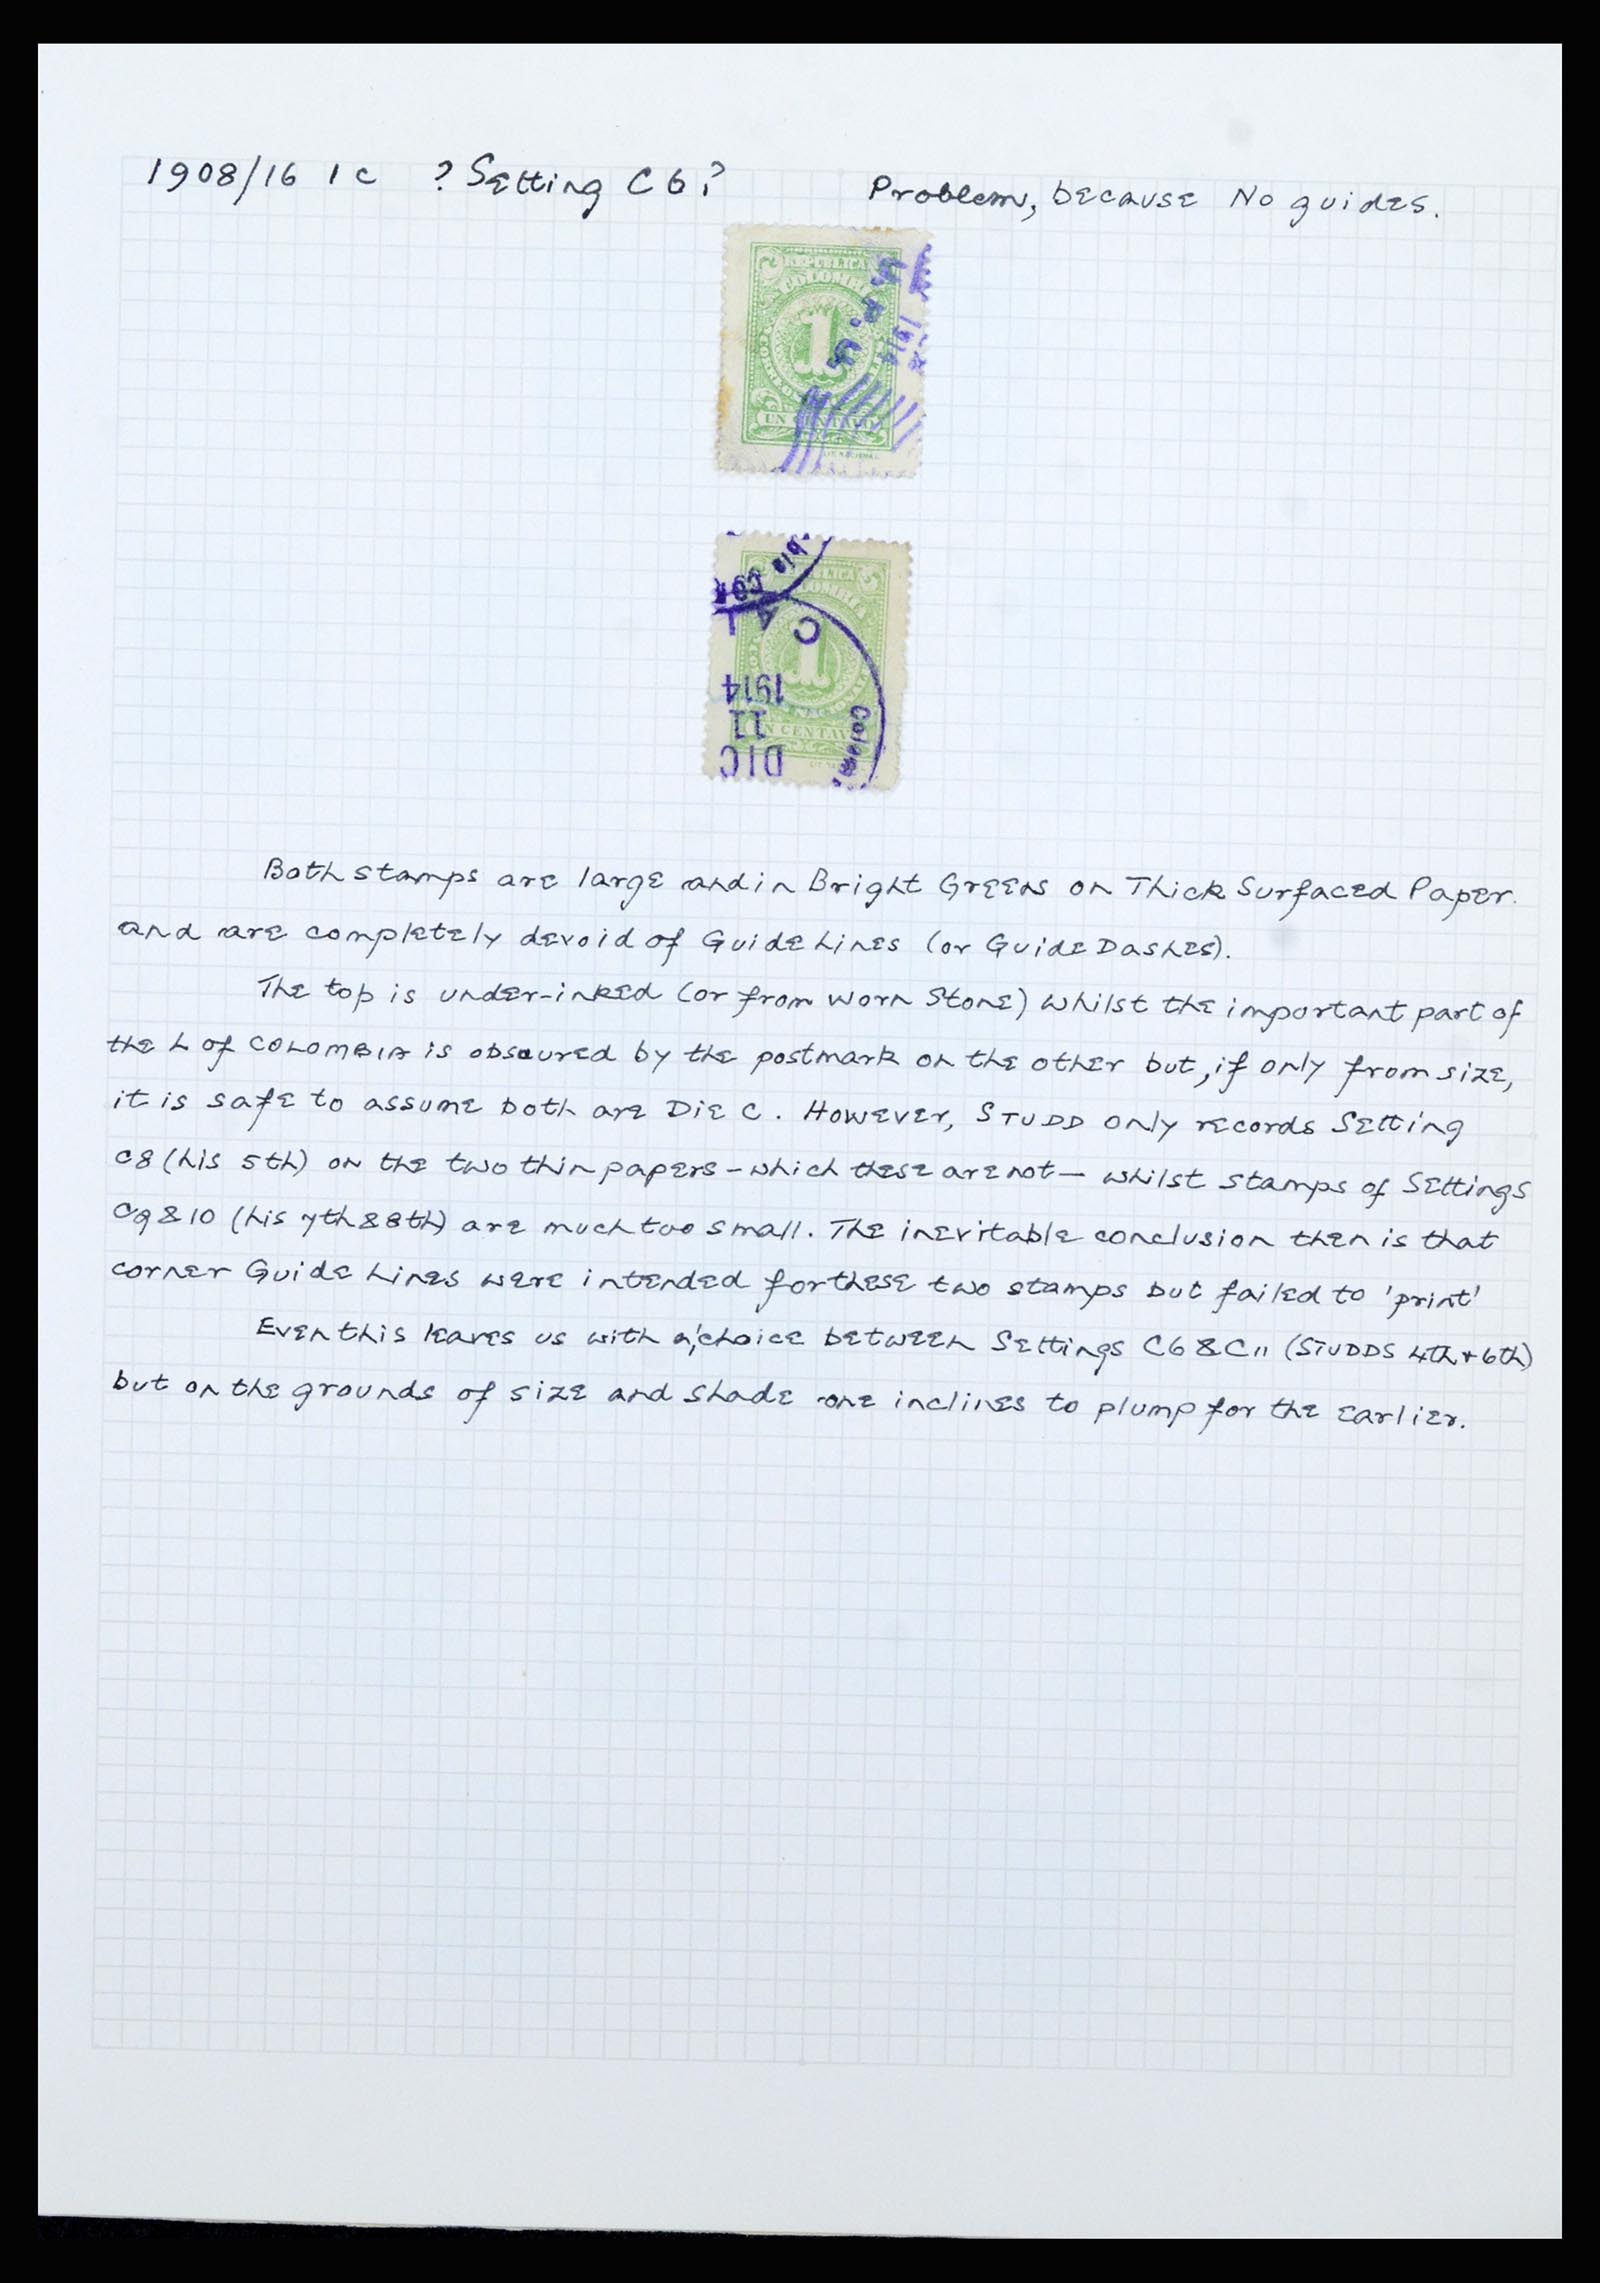 1908/16 1c ? Setting C6 ? Problem, because No guides.
REPUBLICA
COLOMB
1
UN
1914
BLICA
1
1914
11
DIC
N CENTAV
Colom
Both stamps are large and in Bright Greens on Thick Surfaced Paper.
and are completely devoid of Guide Lines (or Guide Dashes).
The top is under-inked (or from worn Stone) whilst the important part of
the L of COLOMBIA is obscured by the postmark on the other but, if only from size,
it is safe to assume both are Die C. However, STUDD only records Setting
C8 (his 5th) on the two thin papers - which these are not - whilst stamps of Settings
C9 & 10 (his 7th & 8th) are much too small. The inevitable conclusion then is that
corner Guide Lines were intended for these two stamps but failed to 'print'
Even this leaves us with a choice between Settings C6 & C11 (STUDDS 4th + 6th)
but on the grounds of size and shade one inclines to plump for the earlier.